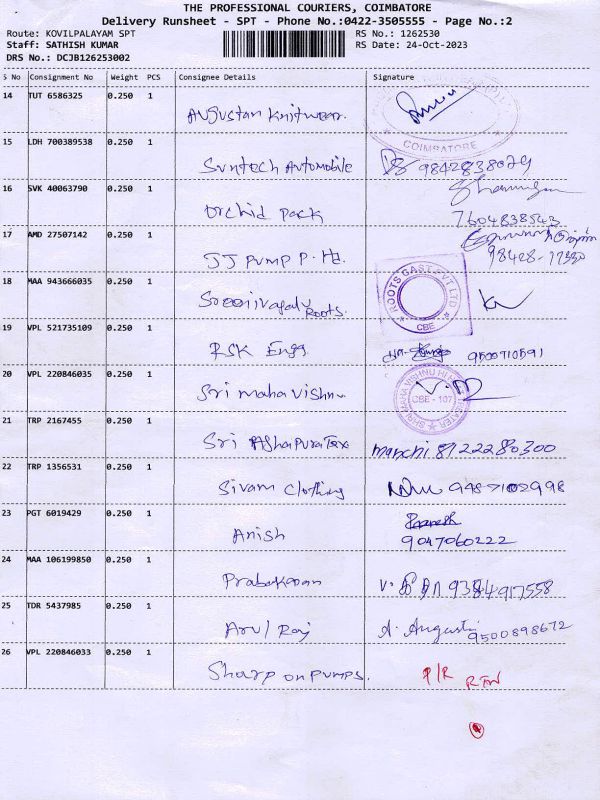 THE PROFESSIONAL COURIERS, COIMBATORE
Delivery Runsheet - SPT - Phone No.:0422-3505555 - Page No.:2
Route: KOVILPALAYAM SPT RS No.: 1262530
Staff: SATHISH KUMAR RS Date: 24-Oct-2023
DRS No.: DCJB126253002
S No Consignment No Weight PCS Consignee Details Signature
14 TUT 6586325 0.250 1 Augustan Knitwear.
COIMBATORE
15 LDH 700389538 0.250 1 Suntech Automobile 9842838079
16 SVK 40063790 0.250 1 Orchid Pack
7604838543
17 AMD 27507142 0.250 1 JJ Pump P. Ltd.
98428-17330
18 MAA 943666035 0.250 1 Roots.
ROOTS CAST PVT LTD
CBE
19 VPL 521735109 0.250 1 RSK Engg 9500710591
20 VPL 220846035 0.250 1 Sri maha vishnu
CBE - 107
21 TRP 2167455 0.250 1 Sri AshapuraTex manchi 8122280300
22 TRP 1356531 0.250 1 Sivam Clothing 9487102998
23 PGT 6019429 0.250 1 Anish
9047060222
24 MAA 106199850 0.250 1 Prabakaran 9384917558
25 TDR 5437985 0.250 1 Arul Raj A. Augasti 9500898672
26 VPL 220846033 0.250 1 Sharp on pumps. P/R RTN